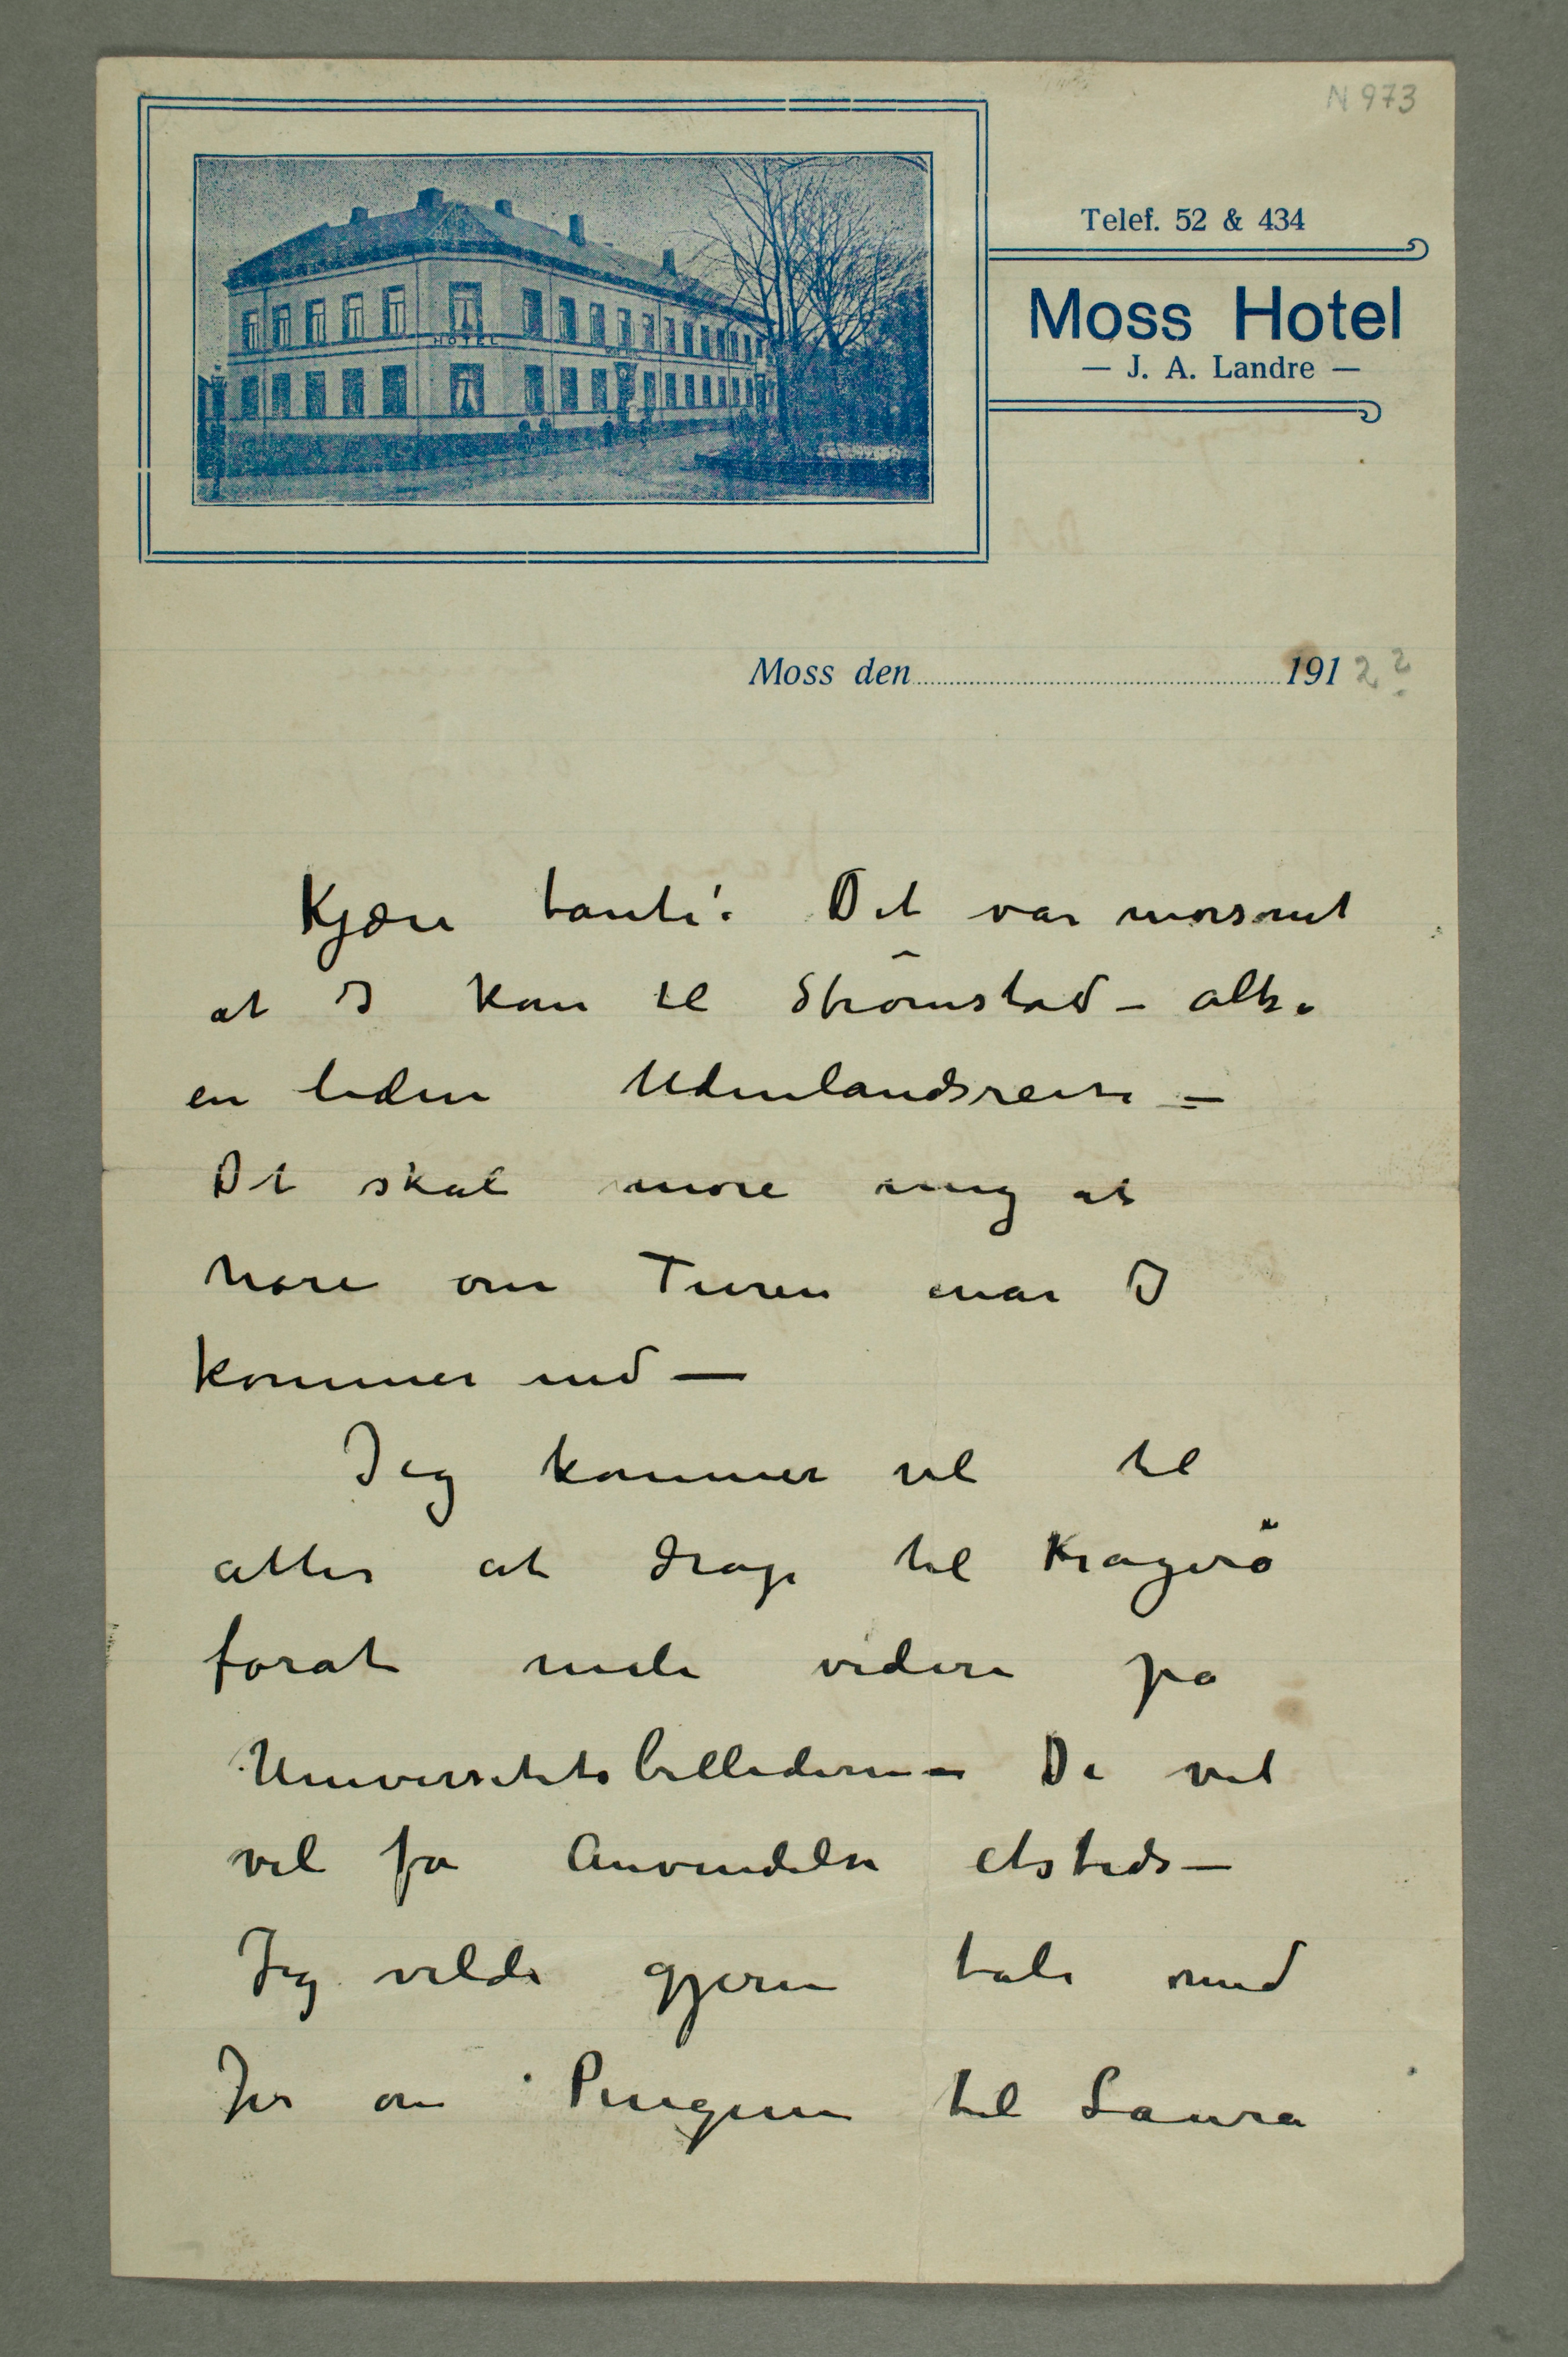 N 973
Telef. 52 & 434
Moss Hotel
— J. A. Landre —
HOTEL
Moss den 191 2?
Kjære tante! Det var morsomt
at I kom til Strömstad – altså
en liden Udenlandsreise –
Det skal more mig at
høre om Turen når I
kommer ned —
Jeg kommer vel til
atter at drage til Kragerö
forat male videre på
Universitetsbillederne – De vil
vel få Anvendelse etsteds –
Jeg vilde gjerne tale med
Jer om Pengene til Laura